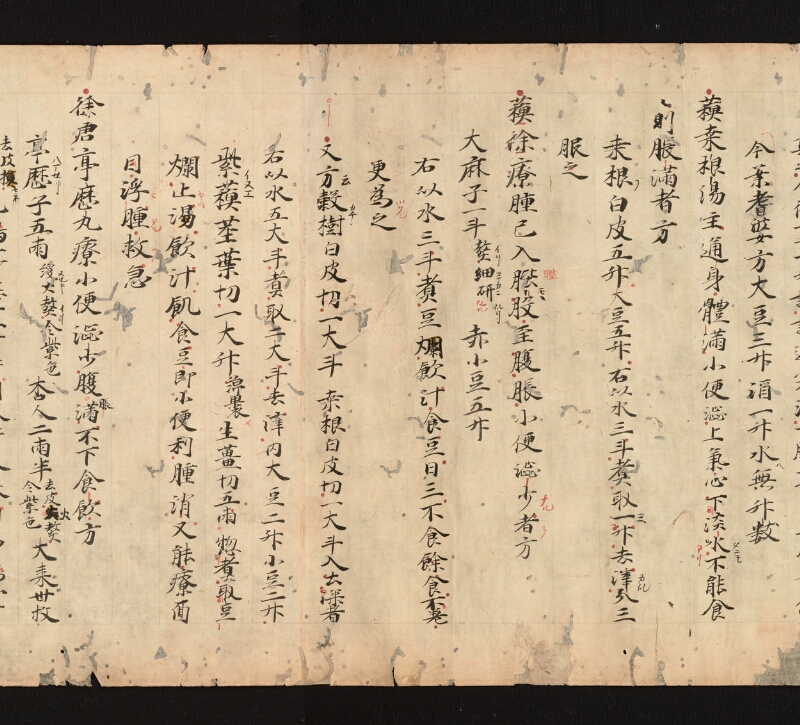 今葉耆婆方大豆三升酒一升水無升數
蘓桒根湯主通身體滿小便澁上氣心下淡水不能食
〻則脹滿者方
桒根白皮五升大豆五升右以水三斗煮取一斗去滓分三
服之
蘓徐療腫已入䏶股至腹脹小便澁少者方
大麻子一斗熬細研 赤小豆五升
右以水三斗煮豆爛飲汁食豆日三不食餘食不差
更為之
又方榖樹白皮切一大斗 桒根白皮切一大斗入土深者
右以水五大斗煮取二大斗去滓内大豆二升小豆二升
紫蘓莖葉切一大升綿裹生薑切五兩惣煮取豆
爛止渴飲汁飢食豆即小便利腫消又能療面
目浮腫救急
徐君亭歷丸療小便澁少腹滿不下食飲方
亭歷子五兩緩火熬令紫色 杏人二兩半去皮熬令紫色 大棗卅枚